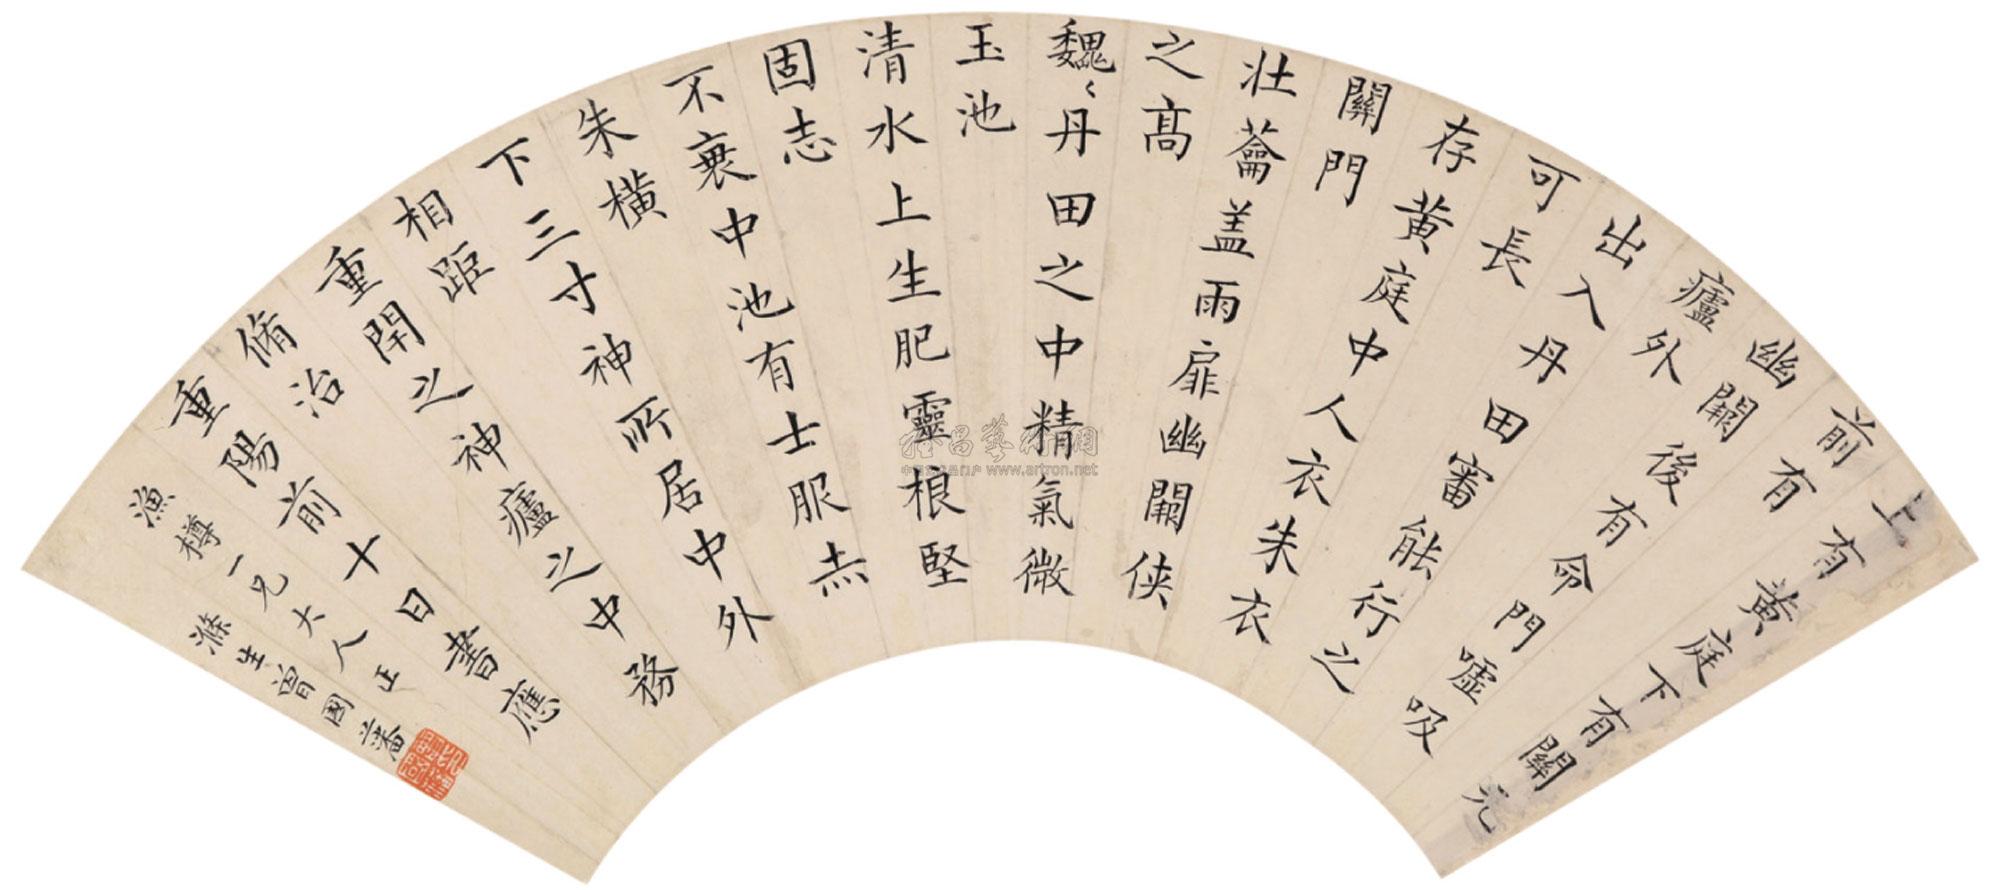 上有黃庭下有關元
前有
幽闕後有命門噓吸
廬外
出入丹田審能行之
可長
存黃庭中人衣朱衣
關門
壯蘥盖雨扉幽闕侠
之高
魏〻丹田之中精氣微
玉池
清水上生肥靈根堅
固志
不衰中池有士服赤
朱橫
下三寸神所居中外
相距
重閇之神廬之中務
脩治
重陽前十日書應
漁樽一兄大人正
滌生曾國藩
雅昌藝術網
www.artron.net